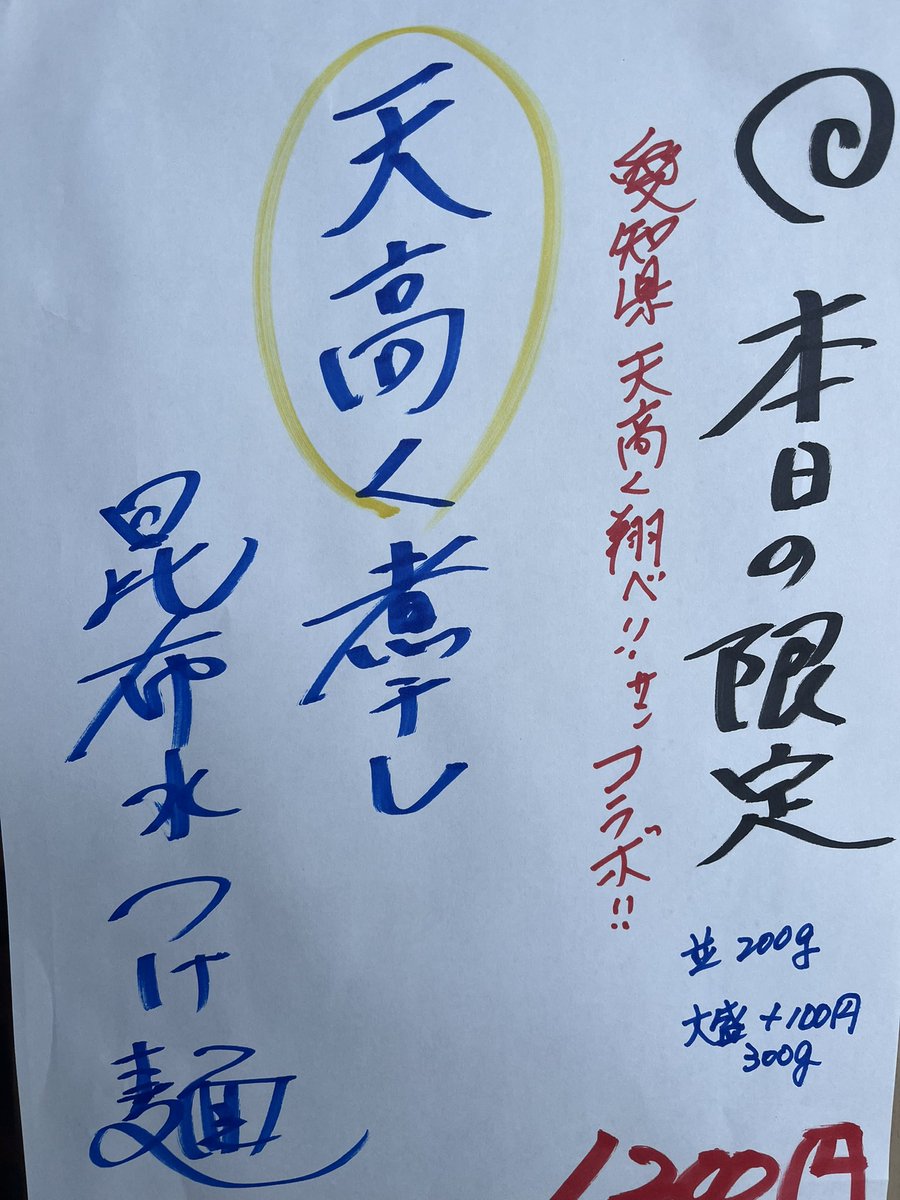 本日の限定
愛知県 天高く翔べ!!サンコラボ!!
天高く煮干し
昆布水つけ麺
並 200g
大盛 +100円
300g
1200円